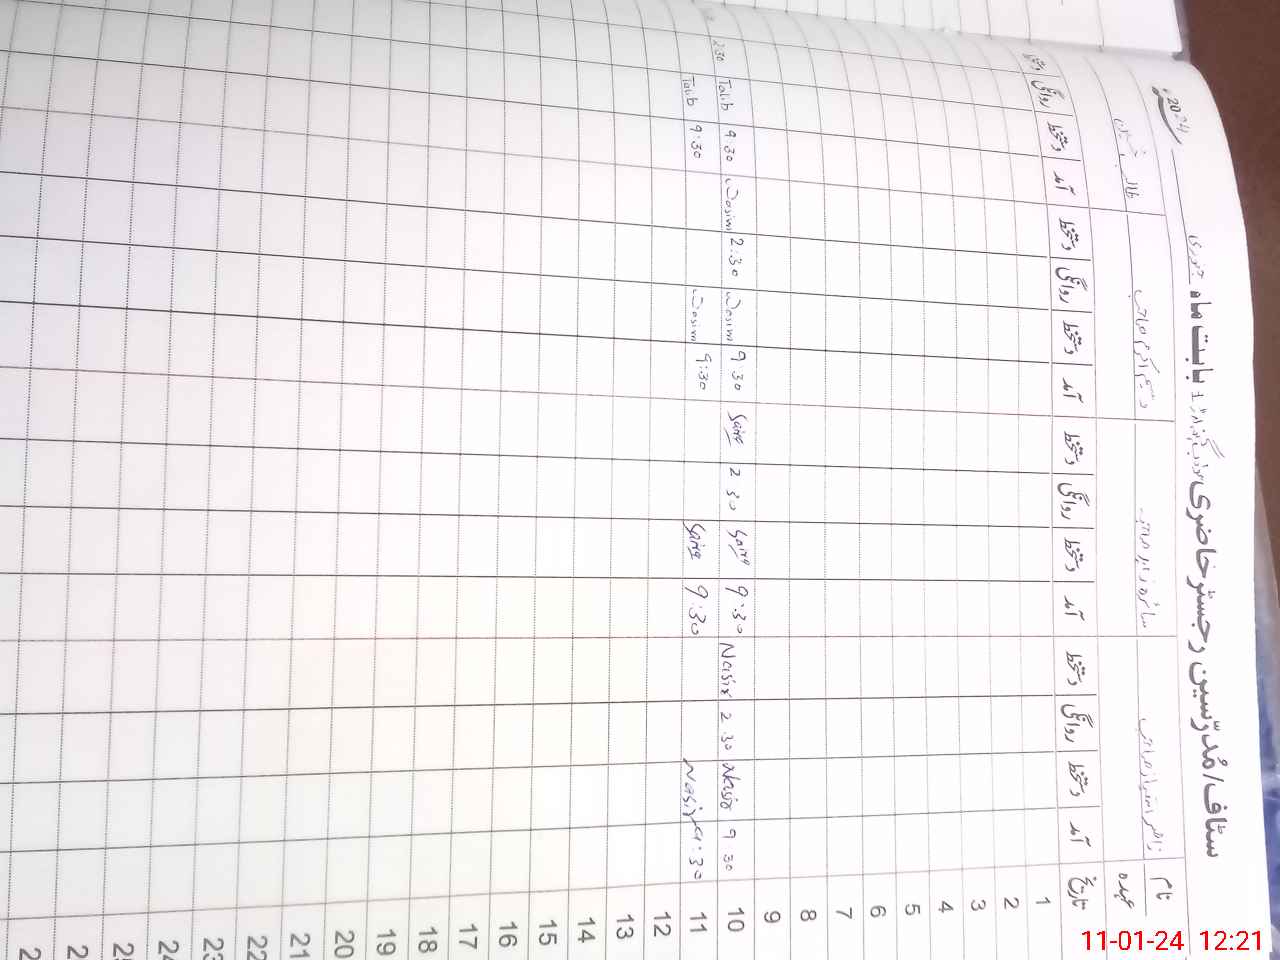 سٹاف/مُدرّسین رجسٹر حاضری بابت ماہ جنوری 2024
نام
عہدہ
تاریخ آمد دستخط روانگی دستخط آمد دستخط روانگی دستخط آمد دستخط روانگی دستخط آمد دستخط روانگی دستخط
1
2
3
4
5
6
7
8
9
10 9 30 Nasir 2.30 Nasir 9:30 Saira 2 30 Saira 9 30 Wasim 2:30 Wasim 9.30 Talib 2 30
11 9:30 Nasir 9:30 Saira 9:30 Wasim 9:30 Talib
12
13
14
15
16
17
18
19
20
21
22
23
11-01-24 12:21